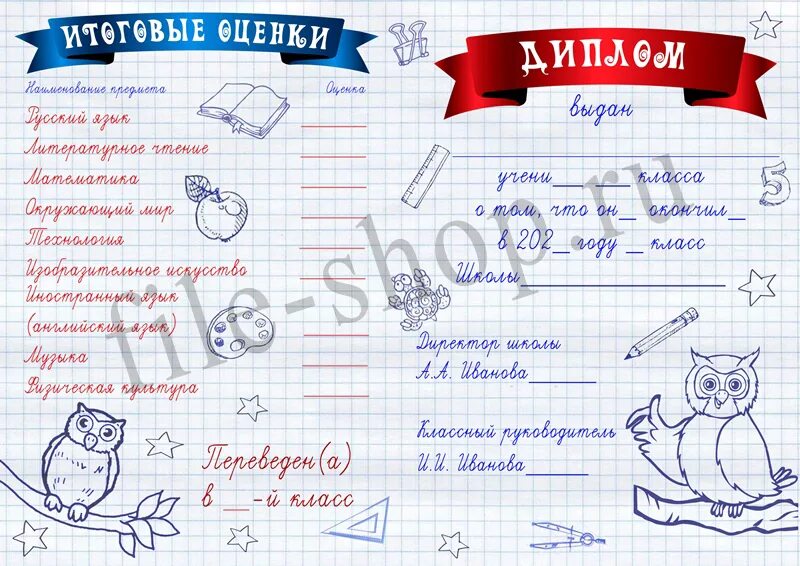 ИТОГОВЫЕ ОЦЕНКИ
Наименование предмета Оценка
Русский язык
Литературное чтение
Математика
Окружающий мир
Технология
Изобразительное искусство
Иностранный язык
(английский язык)
Музыка
Физическая культура
Переведен(а)
в ___-й класс
ДИПЛОМ
выдан
учени____ ____ класса
о том, что он__ окончил__
в 202__ году __ класс
Школы
Директор школы
А.А. Иванова
Классный руководитель
И.И. Иванова
5
file-shop.ru